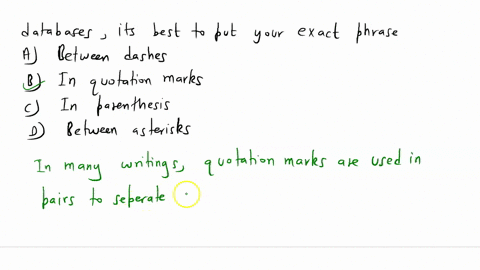 databases, its best to put your exact phrase
A) Between dashes
B) In quotation marks
C) In parenthesis
D) Between asterisks
In many writings, quotation marks are used in
pairs to seperate